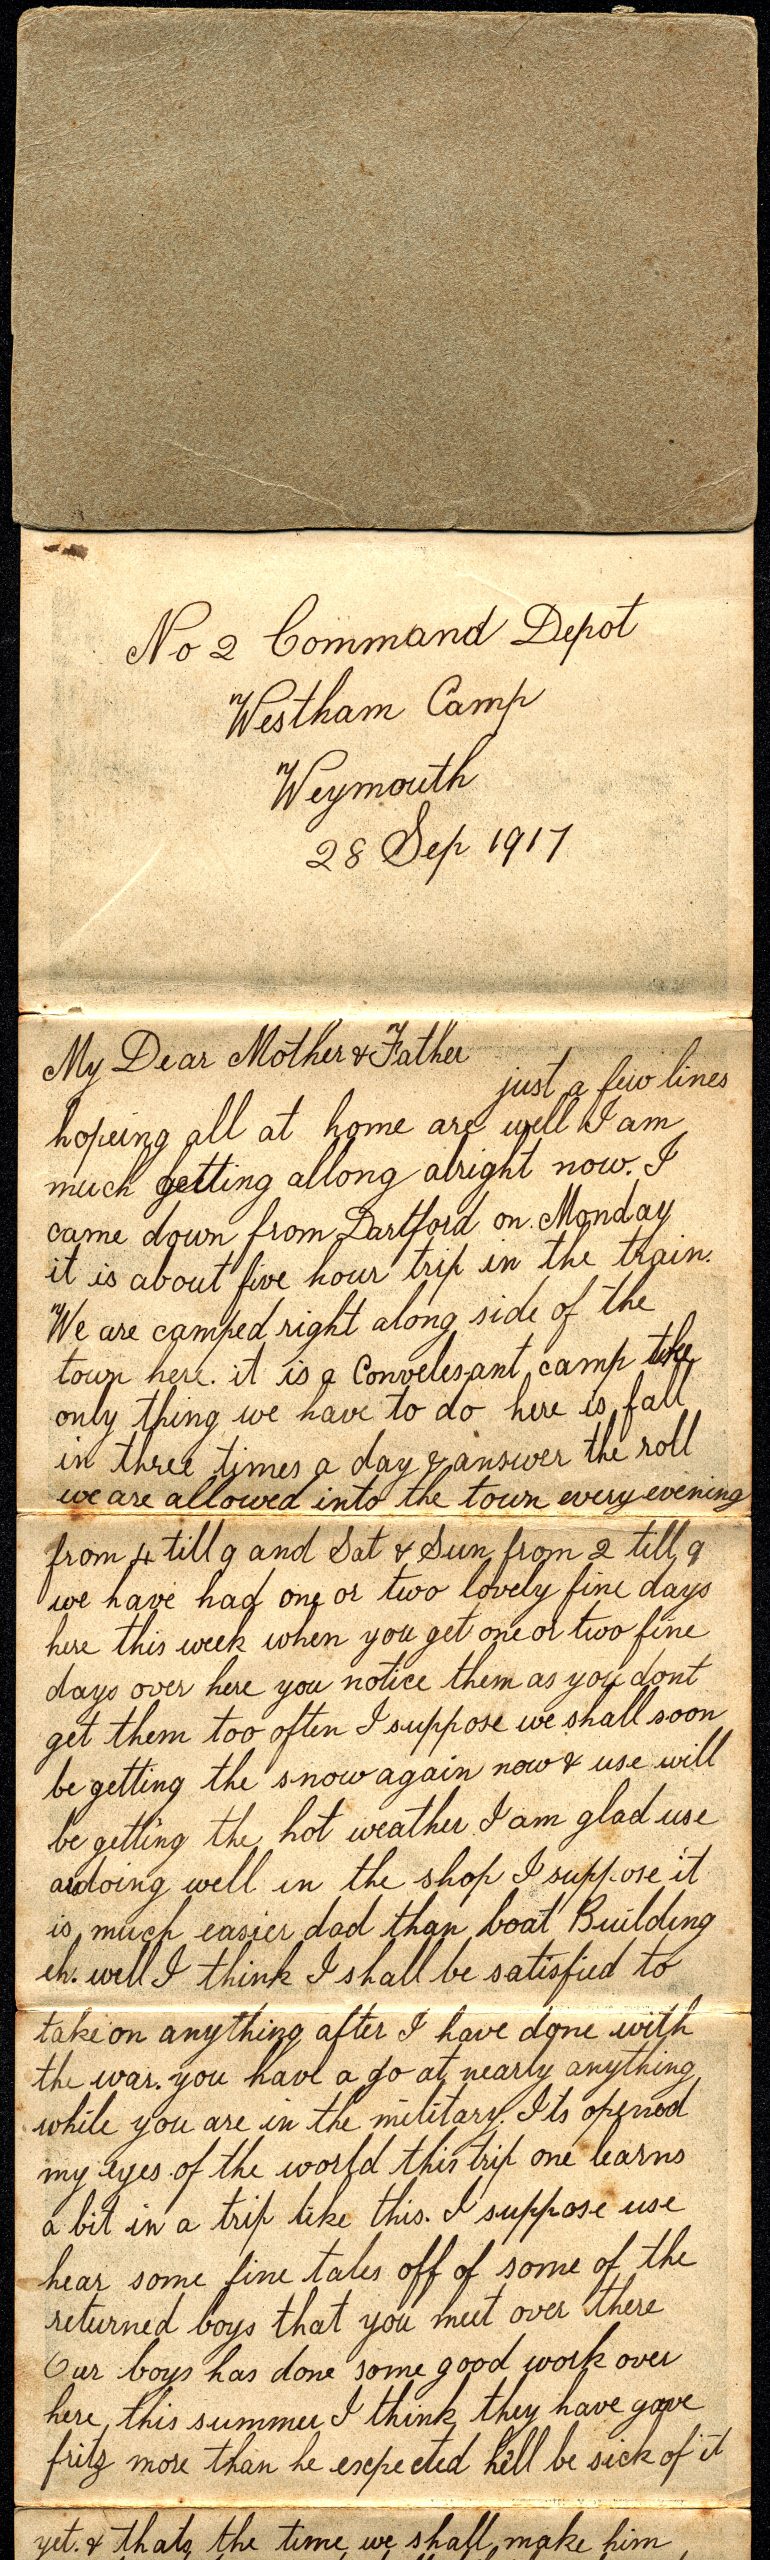 No 2 Command Depot
Westham Camp
Weymouth
28 Sep 1917
My Dear Mother & Father
just a few lines
hopeing all at home are well I am
much getting allong alright now. I
came down from Dartford on Monday
it is about five hour trip in the train.
We are camped right along side of the
town here. it is a Convelesant camp the
only thing we have to do here is fall
in three times a day & answer the roll
we are allowed into the town every evening
from 4 till 9 and Sat & Sun from 2 till 9
we have had one or two lovely fine days
here this week when you get one or two fine
days over here you notice them as you dont
get them too often I suppose we shall soon
be getting the snow again now & use will
be getting the hot weather I am glad use
are doing well in the shop I suppose it
is much easier dad than boat Building
eh. well I think I shall be satisfied to
take on anything after I have done with
the war. you have a go at nearly anything
while you are in the military. Its opened
my eyes of the world this trip one learns
a bit in a trip like this. I suppose use
hear some fine tales off of some of the
returned boys that you meet over there
Our boys has done some good work over
here this summer I think they have gave
fritz more than he excpected hell be sick of it
yet. & thats the time we shall make him